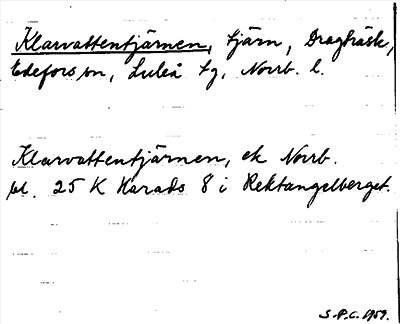 Klarvattentjärnen, tjärn, Dragträsk,
Edefors sn, Luleå tg, Norrb. l.
Klarvattentjärnen, ek Norrb.
bl. 25 K Harads 8 i Rektangelberget.
S.P.C. 1959.